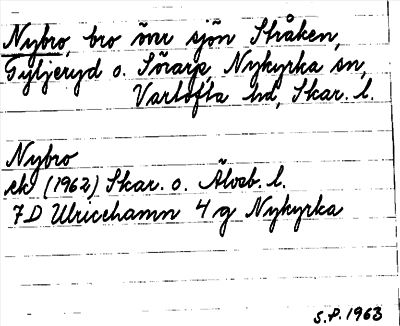 Nybro, bro över sjön Stråken,
Gyljeryd o. Sörarp, Nykyrka sn,
Vartofta hd, Skar. l.
Nybro
ek (1962) Skar. o. Älvsb. l.
7D Ulricehamn 4g Nykyrka
S.P. 1963